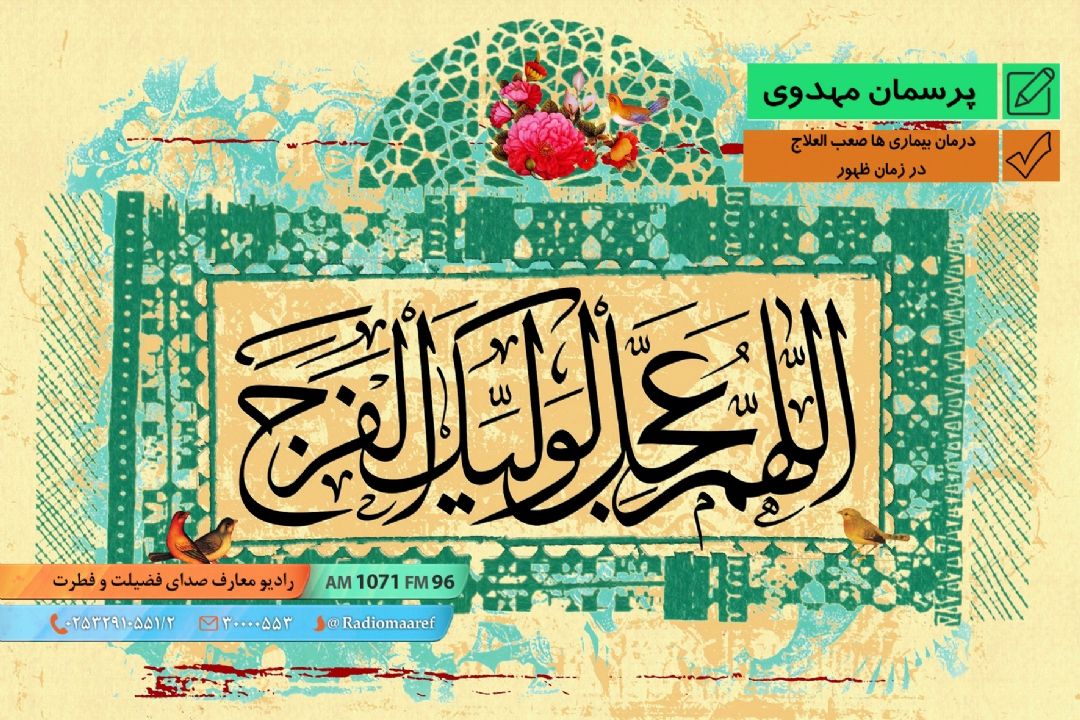 پرسمان مهدوی
درمان بیماری ها صعب العلاج
در زمان ظهور
اللّهُمَّ عَجِّل لِوَلیِّکَ الفَرَجَ
رادیو معارف صدای فضیلت و فطرت
AM 1071 FM 96
۰۲۵۳۲۹۱۰۵۵۱/۲
۳۰۰۰۰۵۵۳
@ Radiomaaref